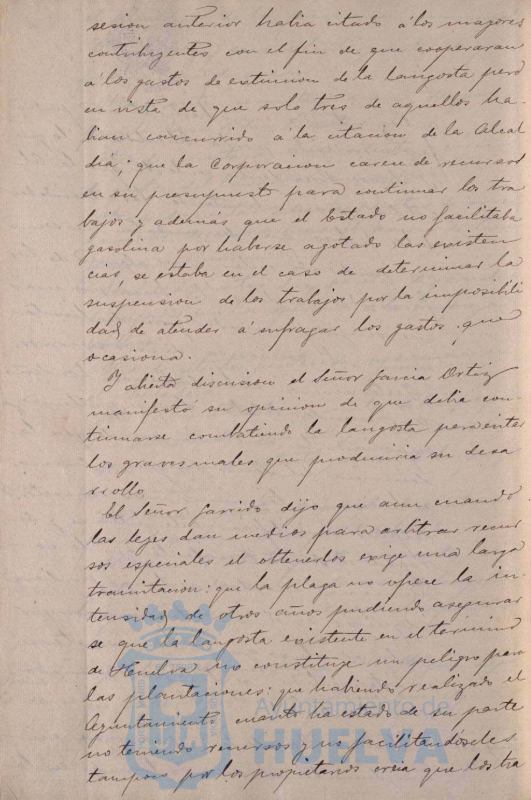 sesion anterior habia citado á los mayores
contribuyentes con el fin de que cooperaran
á los gastos de extincion de la langosta pero
en vista de que solo tres de aquellos ha
bian concurrido á la citacion de la Alcal
dia; que la Corporacion carece de recursos
en su presupuesto para continuar los tra
bajos y además que el Estado no facilitaba
gasolina por haberse agotado las existen
cias, se estaba en el caso de determinar la
suspension de los trabajos por la imposibili
dad de atender á sufragar los gastos que
ocasiona.
Y abierta discusion el Señor Garcia Ortiz
manifestó su opinion de que debia con
tinuarse combatiendo la langosta para evitar
los graves males que produciria su desa
rrollo
El Señor Garrido dijo que aun cuando
las leyes dan medios para arbitrar recur
sos especiales el obtenerlos exige una larga
tramitacion: que la plaga no ofrece la in
tensidad de otros años pudiendo asegurar
se que la langosta existente en el término
de Huelva no constituye un peligro para
las plantaciones: que habiendo realizado el
Ayuntamiento cuanto ha estado de su parte
no teniendo recursos y no facilitándoseles
tampoco por los propietarios creia que los tra
Ayuntamiento de
HUELVA